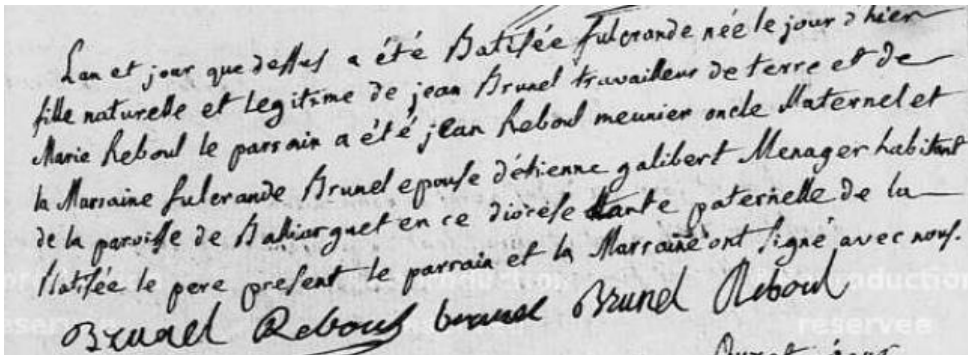 Lan et jour que dessus a été Batisée fulcrande née le jour d'hier
fille naturelle et Legitime de jean Brunel travailleur de terre et de
Marie Reboul le parrain a été jean Reboul meunier oncle Maternel et
la Marraine fulcrande Brunel epouse d'étienne galibert Menager habitant
de la paroisse de Baillarguet en ce diocése tante paternelle de la
Batisée le pere present le parrain et la Marraine ont signé avec nous.
Brunel Reboul brunel Brunel Reboul